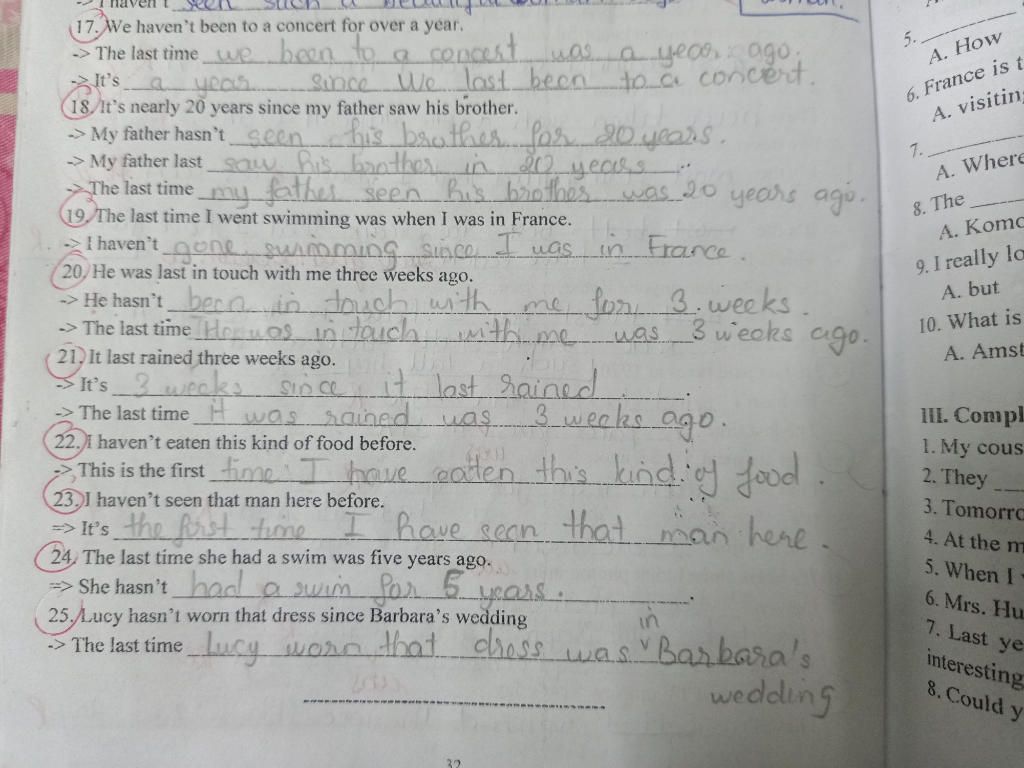 -> I haven't seen such a beautiful
woman.
17. We haven't been to a concert for over a year.
-> The last time we been to a concert was a year ago.
-> It's a year since We last been to a concert.
18. It's nearly 20 years since my father saw his brother.
-> My father hasn't seen his brother for 20 years.
-> My father last saw his brother in 20 years
-> The last time my father seen his brother was 20 years ago.
19. The last time I went swimming was when I was in France.
-> I haven't gone swimming since I was in France.
20. He was last in touch with me three weeks ago.
-> He hasn't been in touch with me for 3 weeks.
-> The last time He was in touch with me was 3 weeks ago.
21. It last rained three weeks ago.
-> It's 3 weeks since it last rained.
-> The last time It was rained was 3 weeks ago.
22. I haven't eaten this kind of food before.
-> This is the first time I have eaten this kind of food.
23. I haven't seen that man here before.
=> It's the first time I have seen that man here.
24. The last time she had a swim was five years ago.
=> She hasn't had a swim for 5 years.
25. Lucy hasn't worn that dress since Barbara's wedding
-> The last time Lucy worn that dress was in Barbara's
wedding
32
5.
A. How
6. France is t
A. visiting
7.
A. Where
8. The
A. Komo
9. I really lo
A. but
10. What is
A. Amst
III. Compl
1. My cous
2. They
3. Tomorro
4. At the m
5. When I
6. Mrs. Hu
7. Last ye
interesting
8. Could y